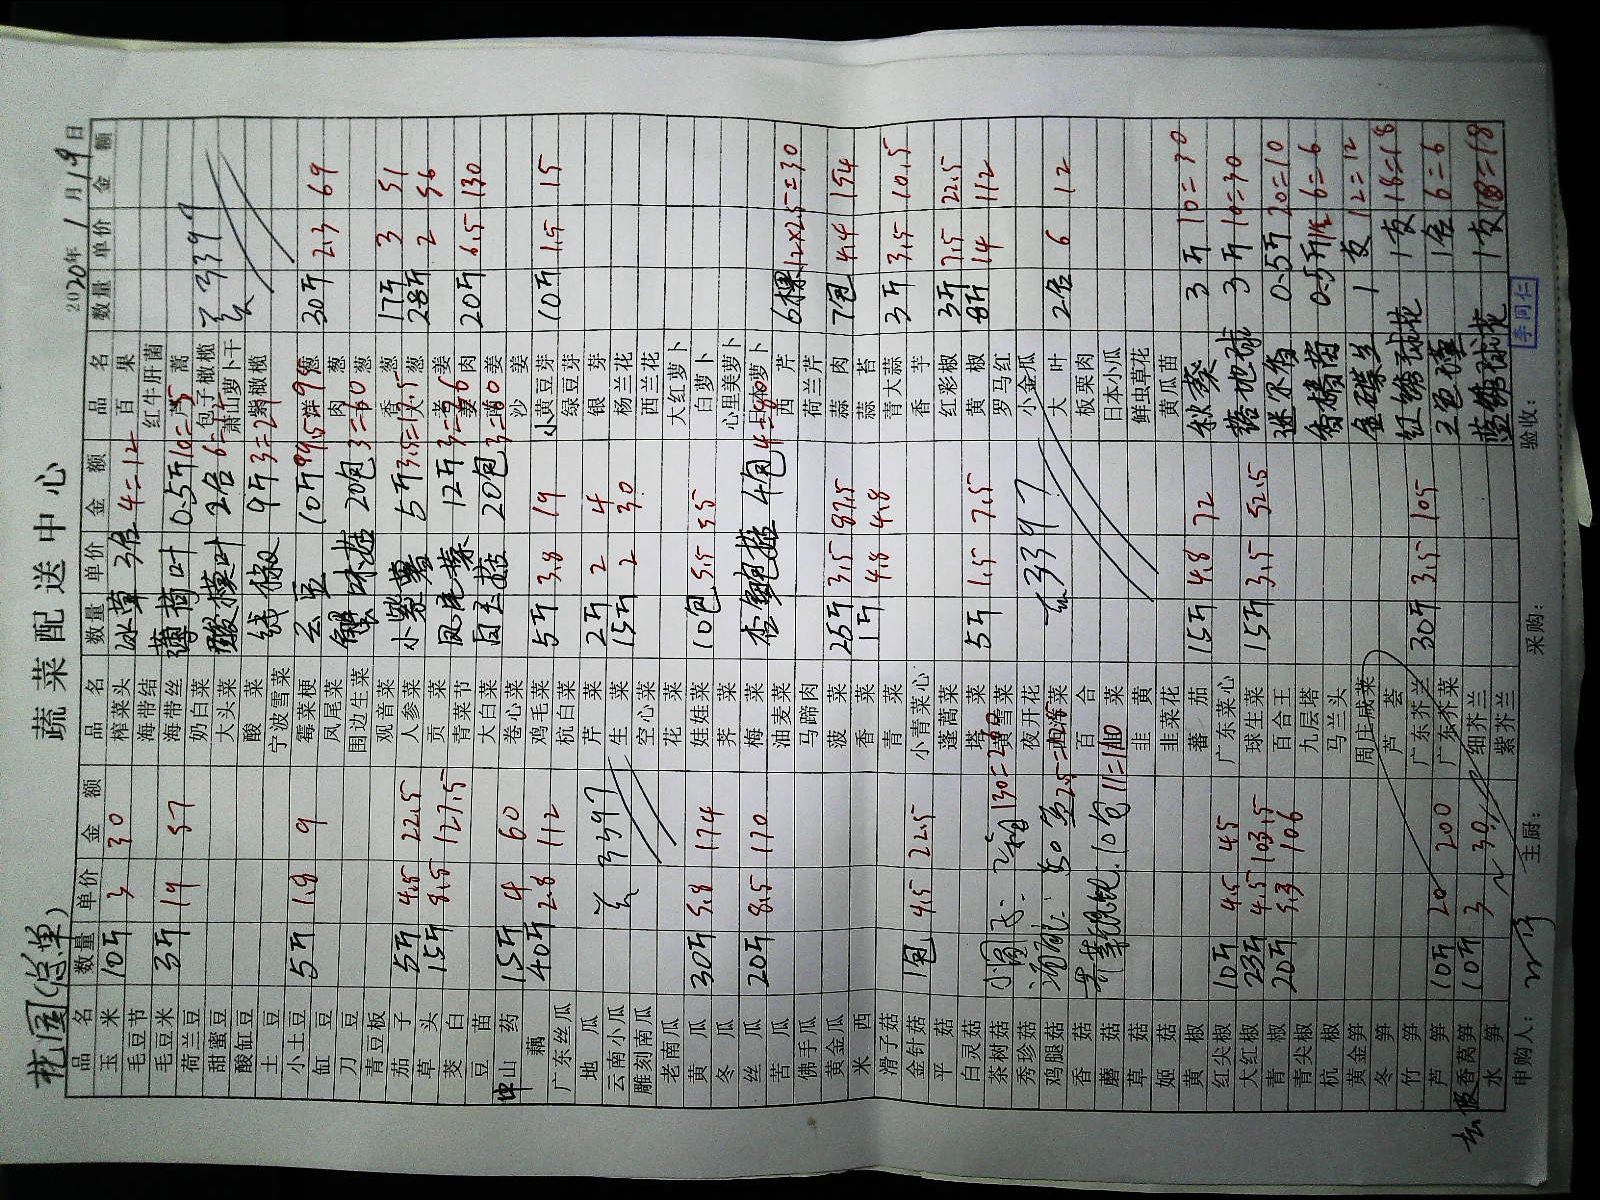 桃园(总单)
蔬菜配送中心
2020年1月19日
品名 数量 单价 金额
玉米 10斤 3 30
毛豆节
毛豆米 3斤 19 57
荷兰豆
甜蜜豆
酸缸豆
土豆
小土豆 5斤 1.8 9
缸豆
刀豆
青豆板
茄子 5斤 4.5 22.5
草头 15斤 8.5 127.5
茭白
豆苗
山药 15斤 4 60
藕 40斤 2.8 112
广东丝瓜
地瓜
云南小瓜
雕刻南瓜
老南瓜
黄瓜 30斤 5.8 174
冬瓜
丝瓜 20斤 8.5 170
苦瓜
佛手瓜
黄金瓜
米西
滑子菇
金针菇 1包 4.5 22.5
平菇
白灵菇
茶树菇
秀珍菇
鸡腿菇
香菇
蘑菇
草菇
姬菇
黄椒
红尖椒 10斤 4.5 45
大红椒 23斤 4.5 103.5
青椒 20斤 5.3 106
青尖椒
杭椒
黄金笋
冬笋
竹笋
芦笋 10斤 20 200
香莴笋 10斤 3 30
水笋
品名 数量 单价 金额
榨菜头 冰草 3包 4=12
海带结
海带丝 薄荷叶 0.5斤 10=5
奶白菜
大头菜
酸菜 线椒 9斤 3=27
宁波雪菜
霉菜梗 云豆 10斤
凤尾菜
围边生菜 20包 3=60
观音菜
人参菜 小紫薯 5斤 3.5=17.5
贡菜
青菜节 12斤 3=36
大白菜 白玉菇 20包 3=60
卷心菜
鸡毛菜 5斤 3.8 19
杭白菜
芹菜 2斤 2 4
生菜 15斤 2 30
空心菜
花菜
娃娃菜 10包 5.5 55
荠菜
梅菜 杏鲍菇 4包
油麦菜
马蹄肉
菠菜 25斤 3.5 87.5
香菜 1斤 4.8 4.8
青菜
小青菜心
蓬蒿菜
塔菜 5斤 1.5 7.5
黄雪菜
夜开花
百合
韭菜
韭黄
韭菜花
蕃茄 15斤 4.8 72
广东菜心
球生菜 15斤 3.5 52.5
百合王
九层塔
马兰头
周庄咸菜
芦荟
广东芥兰 30斤 3.5 105
广东芥菜
细芥兰
紫芥兰
品名 数量 单价 金额
百果
红牛肝菌
芦蒿
包子橄榄
萧山萝卜干
紫橄榄
洋葱 30斤 2.3 69
肉葱
葱
香葱 17斤 3 51
大葱 28斤 2 56
老姜
姜肉 20斤 6.5 130
南姜
沙姜
小黄豆芽 10斤 1.5 15
绿豆芽
银芽
杨兰花
西兰花
大红萝卜
白萝卜
心里美萝卜
西芹 6棵 12×2.5=30
荷兰芹
蒜肉 7包 4.4 154
蒜苔
青大蒜 3斤 3.5 10.5
香芋
红彩椒 3斤 7.5 22.5
黄椒 8斤 14 112
罗马红
小金瓜
大叶 2包 6 12
板栗肉
日本小瓜
鲜虫草花
黄瓜苗
秋葵 3斤 10=30
3斤 10=30
迷尔香 0.5斤 20=10
0.5斤 6=6
金蝶兰 1支 12=12
红绣球花 1支 18=18
三色堇 1包 6=6
蓝绣球花 1支 18=18
申购人： 主厨： 采购： 验收： 李同仁